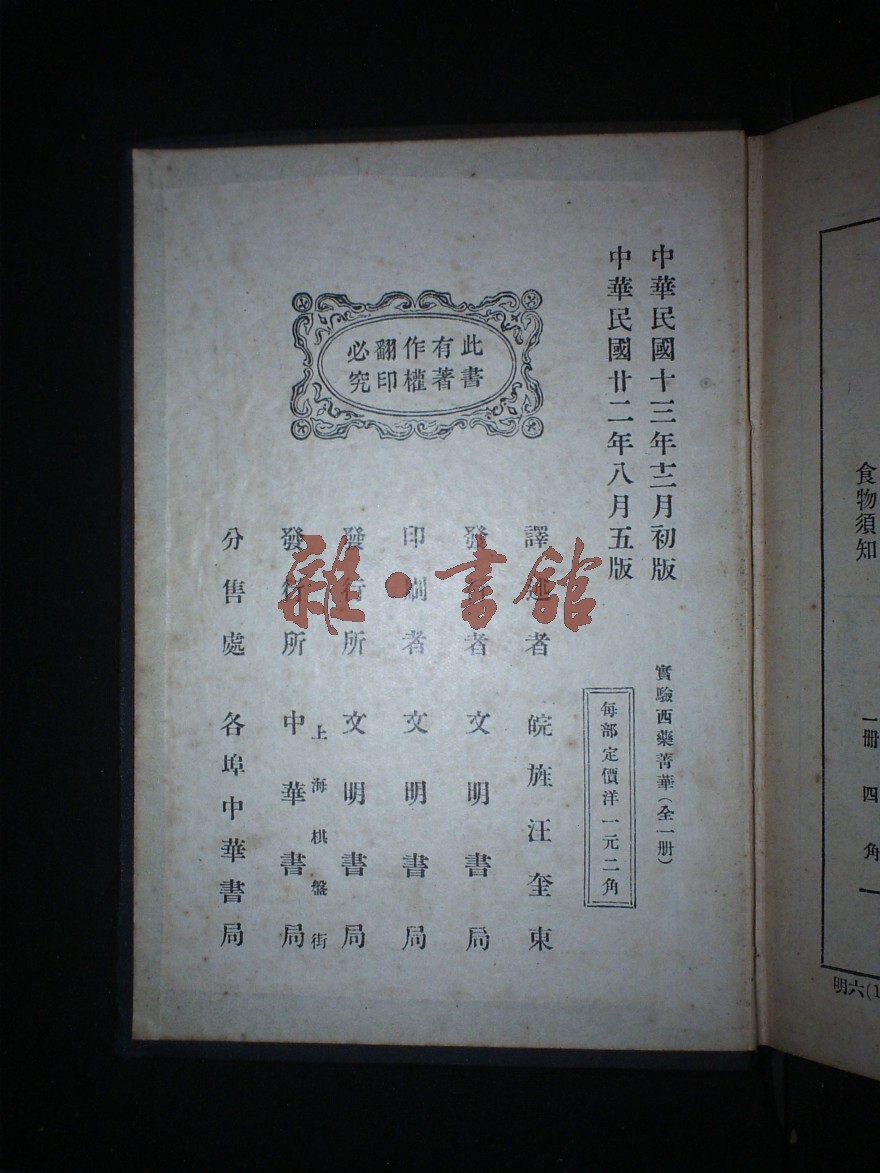 食物須知
一冊 四角
明六(1
中華民國十三年十二月初版
中華民國廿二年八月五版
實驗西藥菁華(全一册)
每部定價洋一元二角
此書有著作權翻印必究
譯述者 皖旌汪奎東
發行者 文明書局
印刷者 文明書局
發行所 文明書局
上海棋盤街
發行所 中華書局
分售處 各埠中華書局
雜·書館